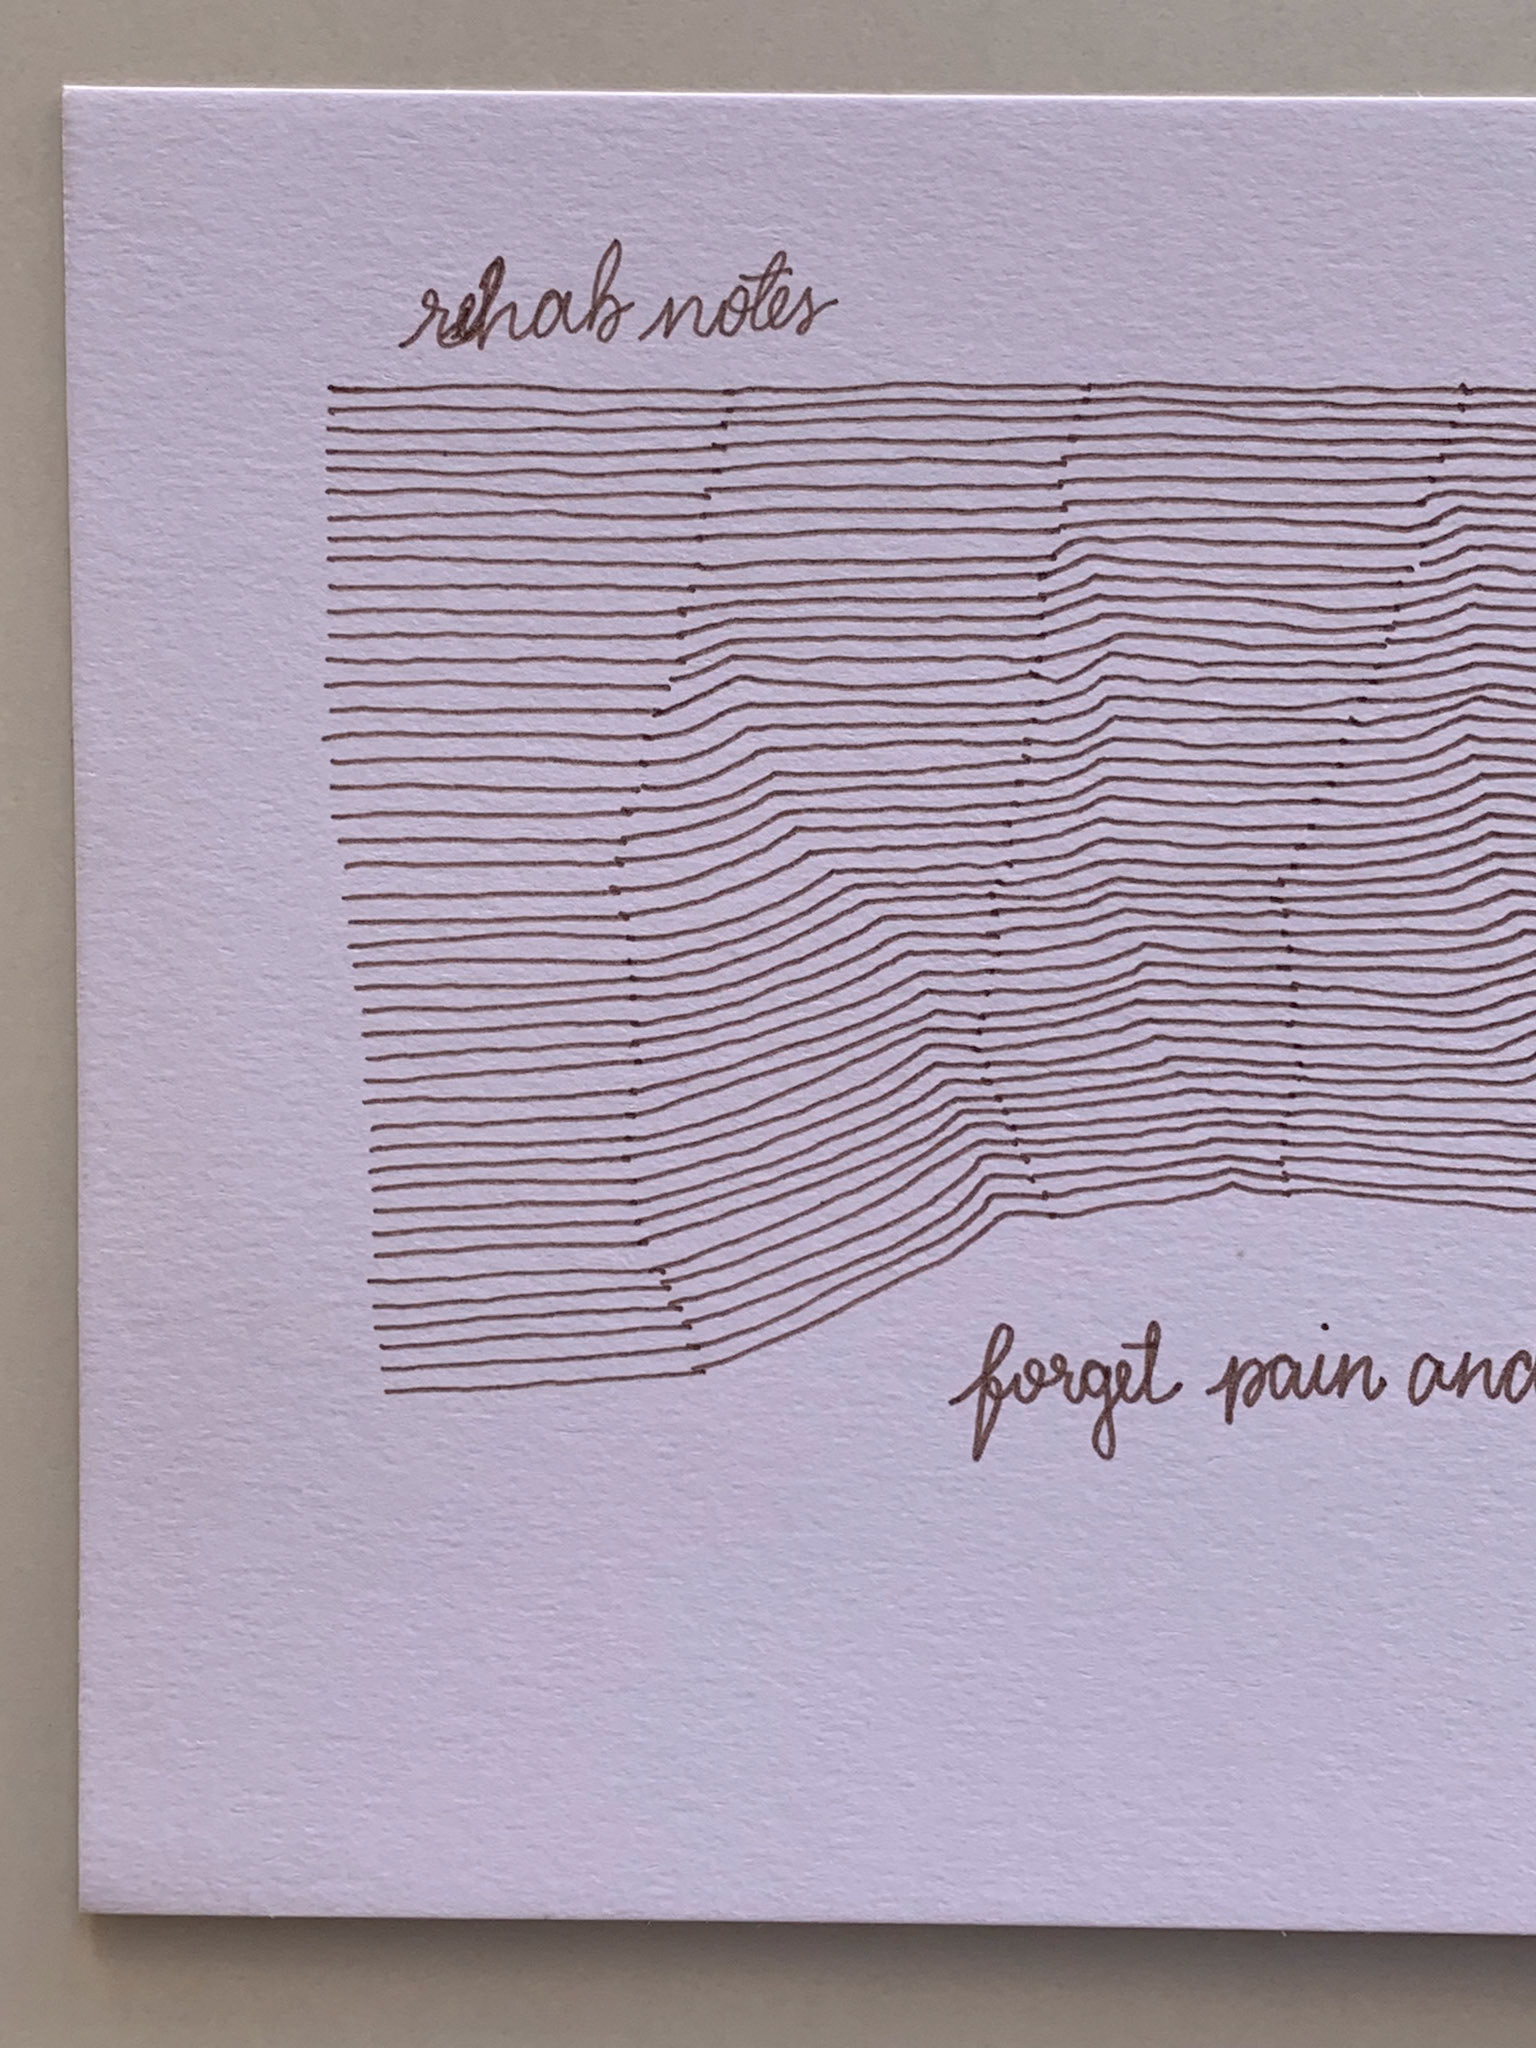 rehab notes
forget pain and